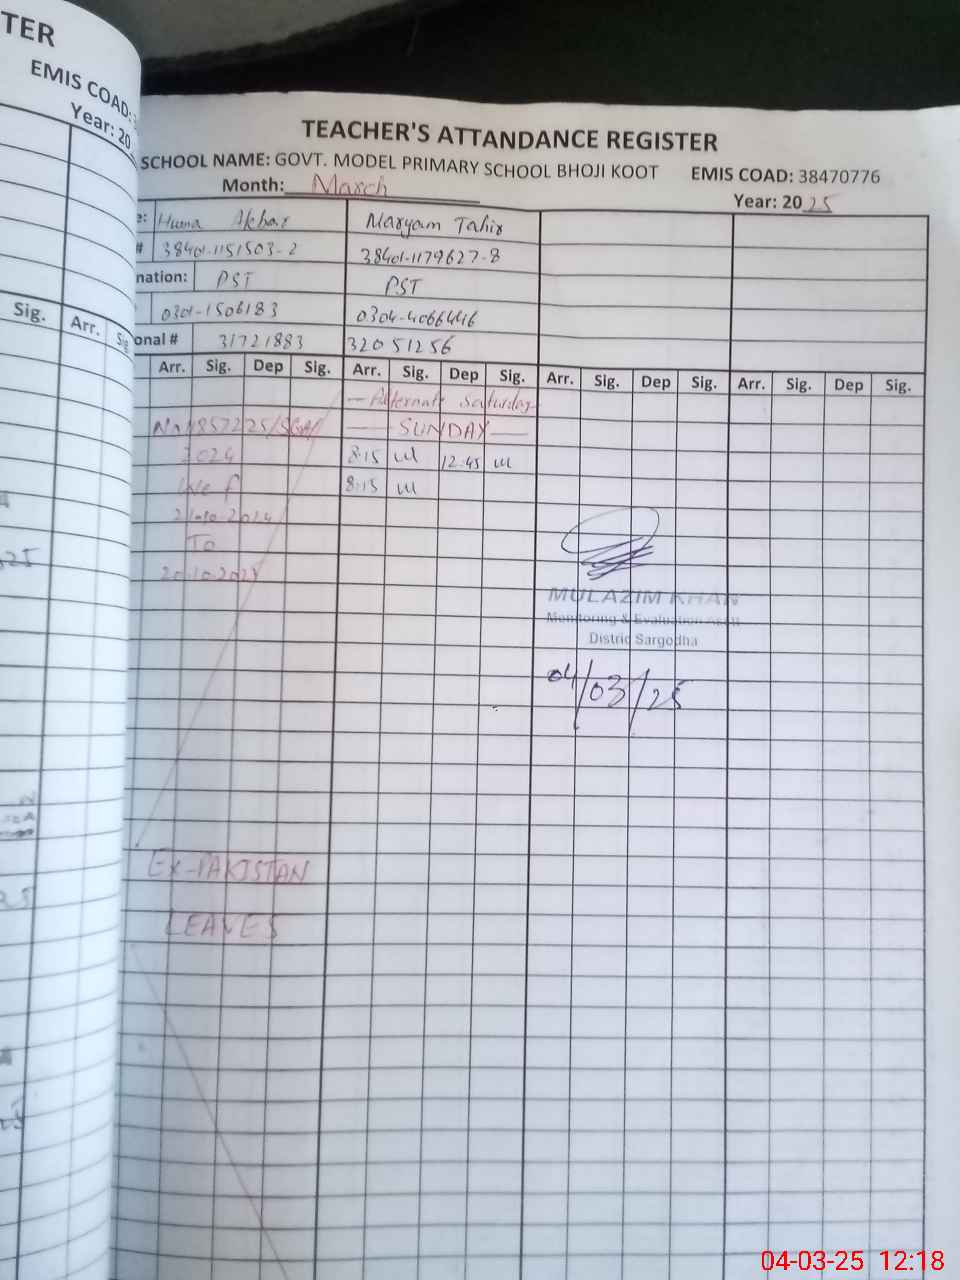 TER
EMIS COAD:
Year: 20
Sig.
Arr.
TEACHER'S ATTANDANCE REGISTER
SCHOOL NAME: GOVT. MODEL PRIMARY SCHOOL BHOJI KOOT EMIS COAD: 38470776
Month: March
Year: 2025
Huma Akbar Maryam Tahir
38401-1151503-2 38401-1179627-8
nation: PST PST
0301-1506183 0304-4066446
onal # 31721883 32051256
Arr. Sig. Dep Sig. Arr. Sig. Dep Sig. Arr. Sig. Dep Sig. Arr. Sig. Dep Sig.
— Alternate Saturday
— SUNDAY —
2024 8:15 12:45
8:15
To
MULAZIM KHAN
Monitoring & Evaluation
Distric Sargodha
04/03/25
EX-PAKISTAN
LEAVES
04-03-25 12:18